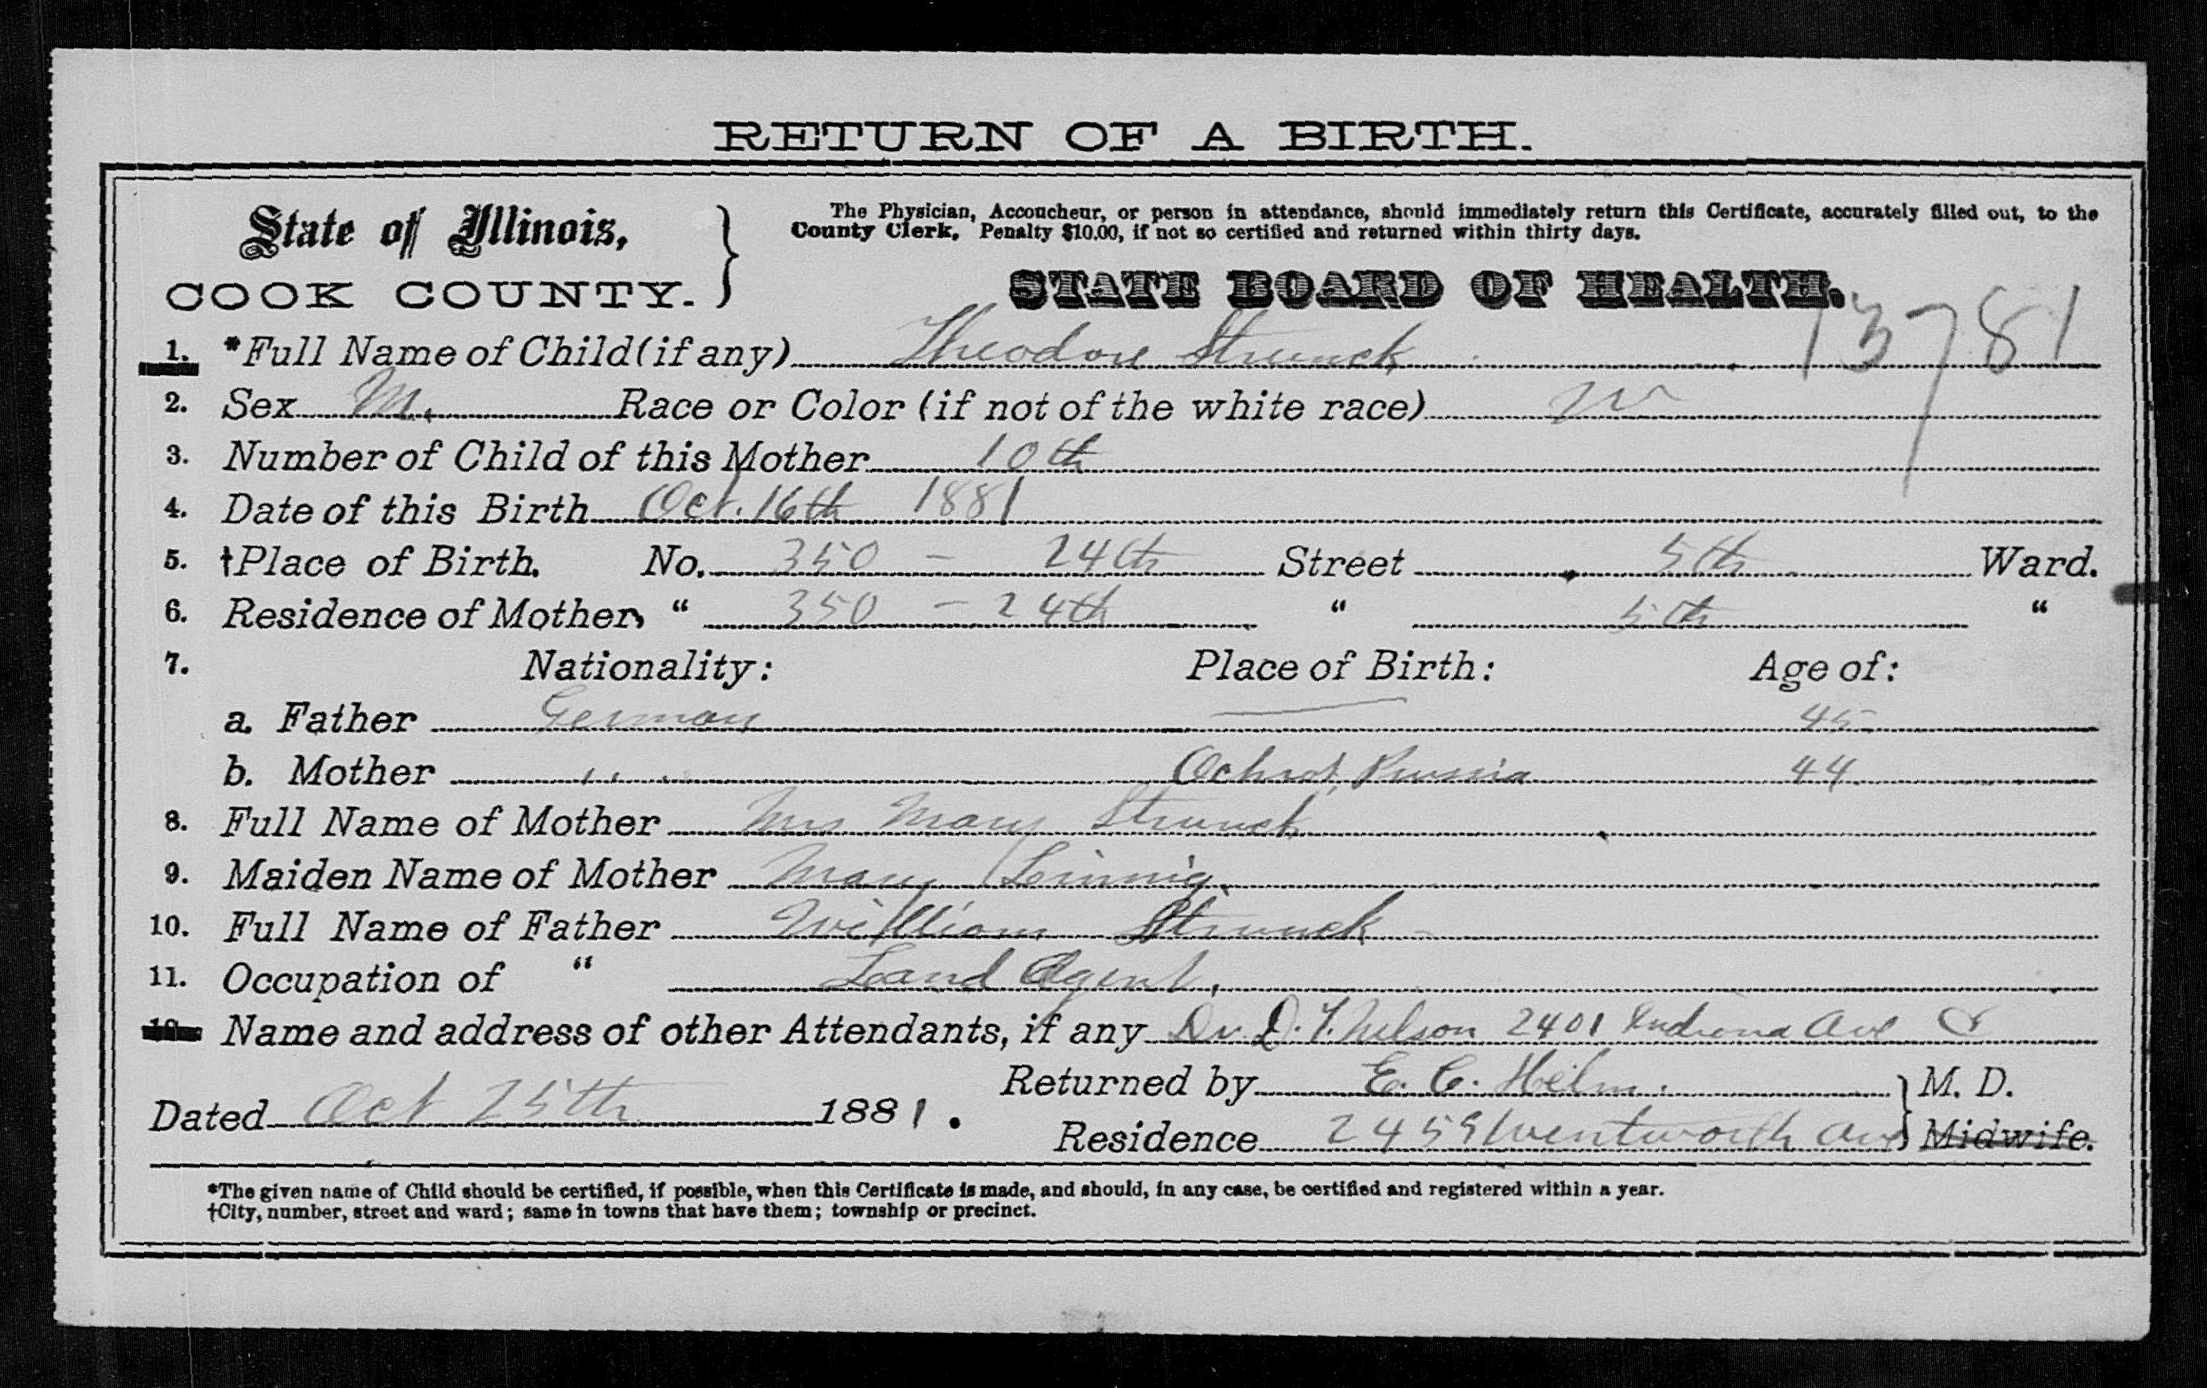 RETURN OF A BIRTH.
State of Illinois,
COOK COUNTY.
The Physician, Accoucheur, or person in attendance, should immediately return this Certificate, accurately filled out, to the
County Clerk. Penalty $10.00, if not so certified and returned within thirty days.
STATE BOARD OF HEALTH.
13781
1. *Full Name of Child (if any) Theodore Strunck
2. Sex M. Race or Color (if not of the white race) W
3. Number of Child of this Mother 10th
4. Date of this Birth Oct. 16th 1881
5. †Place of Birth. No. 350 - 24th Street 5th Ward.
6. Residence of Mother, " 350 - 24th " 5th "
7. Nationality: Place of Birth: Age of:
a. Father German — 45
b. Mother " Prussia 44
8. Full Name of Mother Mrs Mary Strunck
9. Maiden Name of Mother Mary Linnig
10. Full Name of Father William Strunck
11. Occupation of " Land Agent,
12. Name and address of other Attendants, if any Dr. D. T. Nelson 2401 Indiana Ave
Returned by E. C. Helm. M. D.
Dated Oct 25th 1881.
Residence 2459 Wentworth Ave Midwife.
*The given name of Child should be certified, if possible, when this Certificate is made, and should, in any case, be certified and registered within a year.
†City, number, street and ward; same in towns that have them; township or precinct.